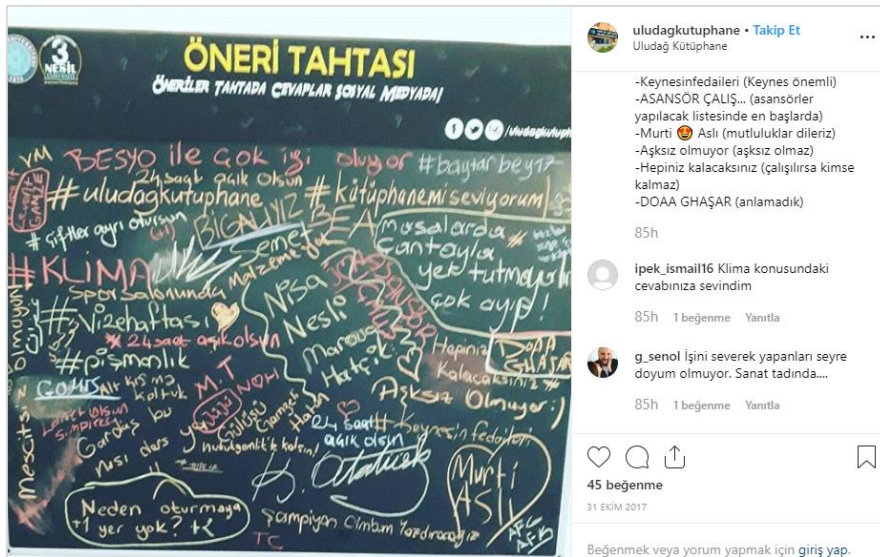 3. NESİL
ÖNERİ TAHTASI
ÖNERİLER TAHTADA CEVAPLAR SOSYAL MEDYADA!
/uludagkutuph
BESYO ile çok iyi oluyor #baytarbey17
24 saat açık olsun
#uludagkutuphane #kütüphanemiseviyorum
#çiftler ayrı otursun (+1)
BİGALIYIZ BEA
Semet
Masalarda
çantayla
yer tutmayın
çok ayıp!
#KLİMA
Spor salonunda malzeme yok
#vizehaftası
* 24 saat açık olsun
#pişmanlık
Nisa
Nesli
Marova
Hatçik
Hepiniz
Kalacaksınız
DOAA
GHAŞAR
GOHIS Alt kısma
koltuk
M.T
NOH
Aşksız Olmuyor:)
Gardaş bu
nası ders ya
Güllüşü
Gamzeli
Hatun
24 saat
açık olsun
#Keynesin fedaileri
hukukgenlik'e kalsın!
K. Atatürk
Murti
ASLI
Neden oturmaya
+1 yer yok? +<
Şampiyon Cimbom Yazdıracağız
TC
AFC
AFK
Mescitsiz olmuyor
uludagkutuphane • Takip Et
Uludağ Kütüphane
-Keynesinfedaileri (Keynes önemli)
-ASANSÖR ÇALIŞ... (asansörler
yapılacak listesinde en başlarda)
-Murti 😍 Aslı (mutluluklar dileriz)
-Aşksız olmuyor (aşksız olmaz)
-Hepiniz kalacaksınız (çalışılırsa kimse
kalmaz)
-DOAA GHAŞAR (anlamadık)
85h
ipek_ismail16 Klima konusundaki
cevabınıza sevindim
85h 1 beğenme Yanıtla
g_senol İşini severek yapanları seyre
doyum olmuyor. Sanat tadında....
85h 1 beğenme Yanıtla
45 beğenme
31 EKİM 2017
Beğenmek veya yorum yapmak için giriş yap.